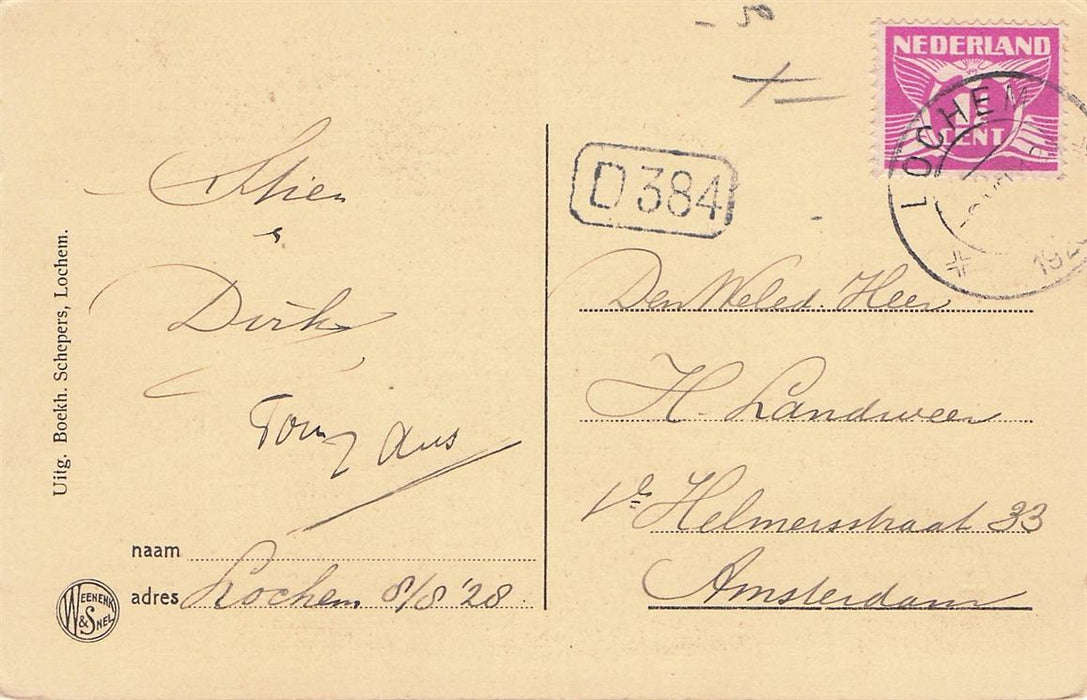 - 50
NEDERLAND
1½
CENT
LOCHEM
192
D 384
Stien
Dirk
Tom
Den WelEd. Heer
H. Landweer
1e Helmersstraat 33
Amsterdam
naam
adres Lochem 8/8 '28
Uitg. Boekh. Schepers, Lochem.
WEENENK & SNEL